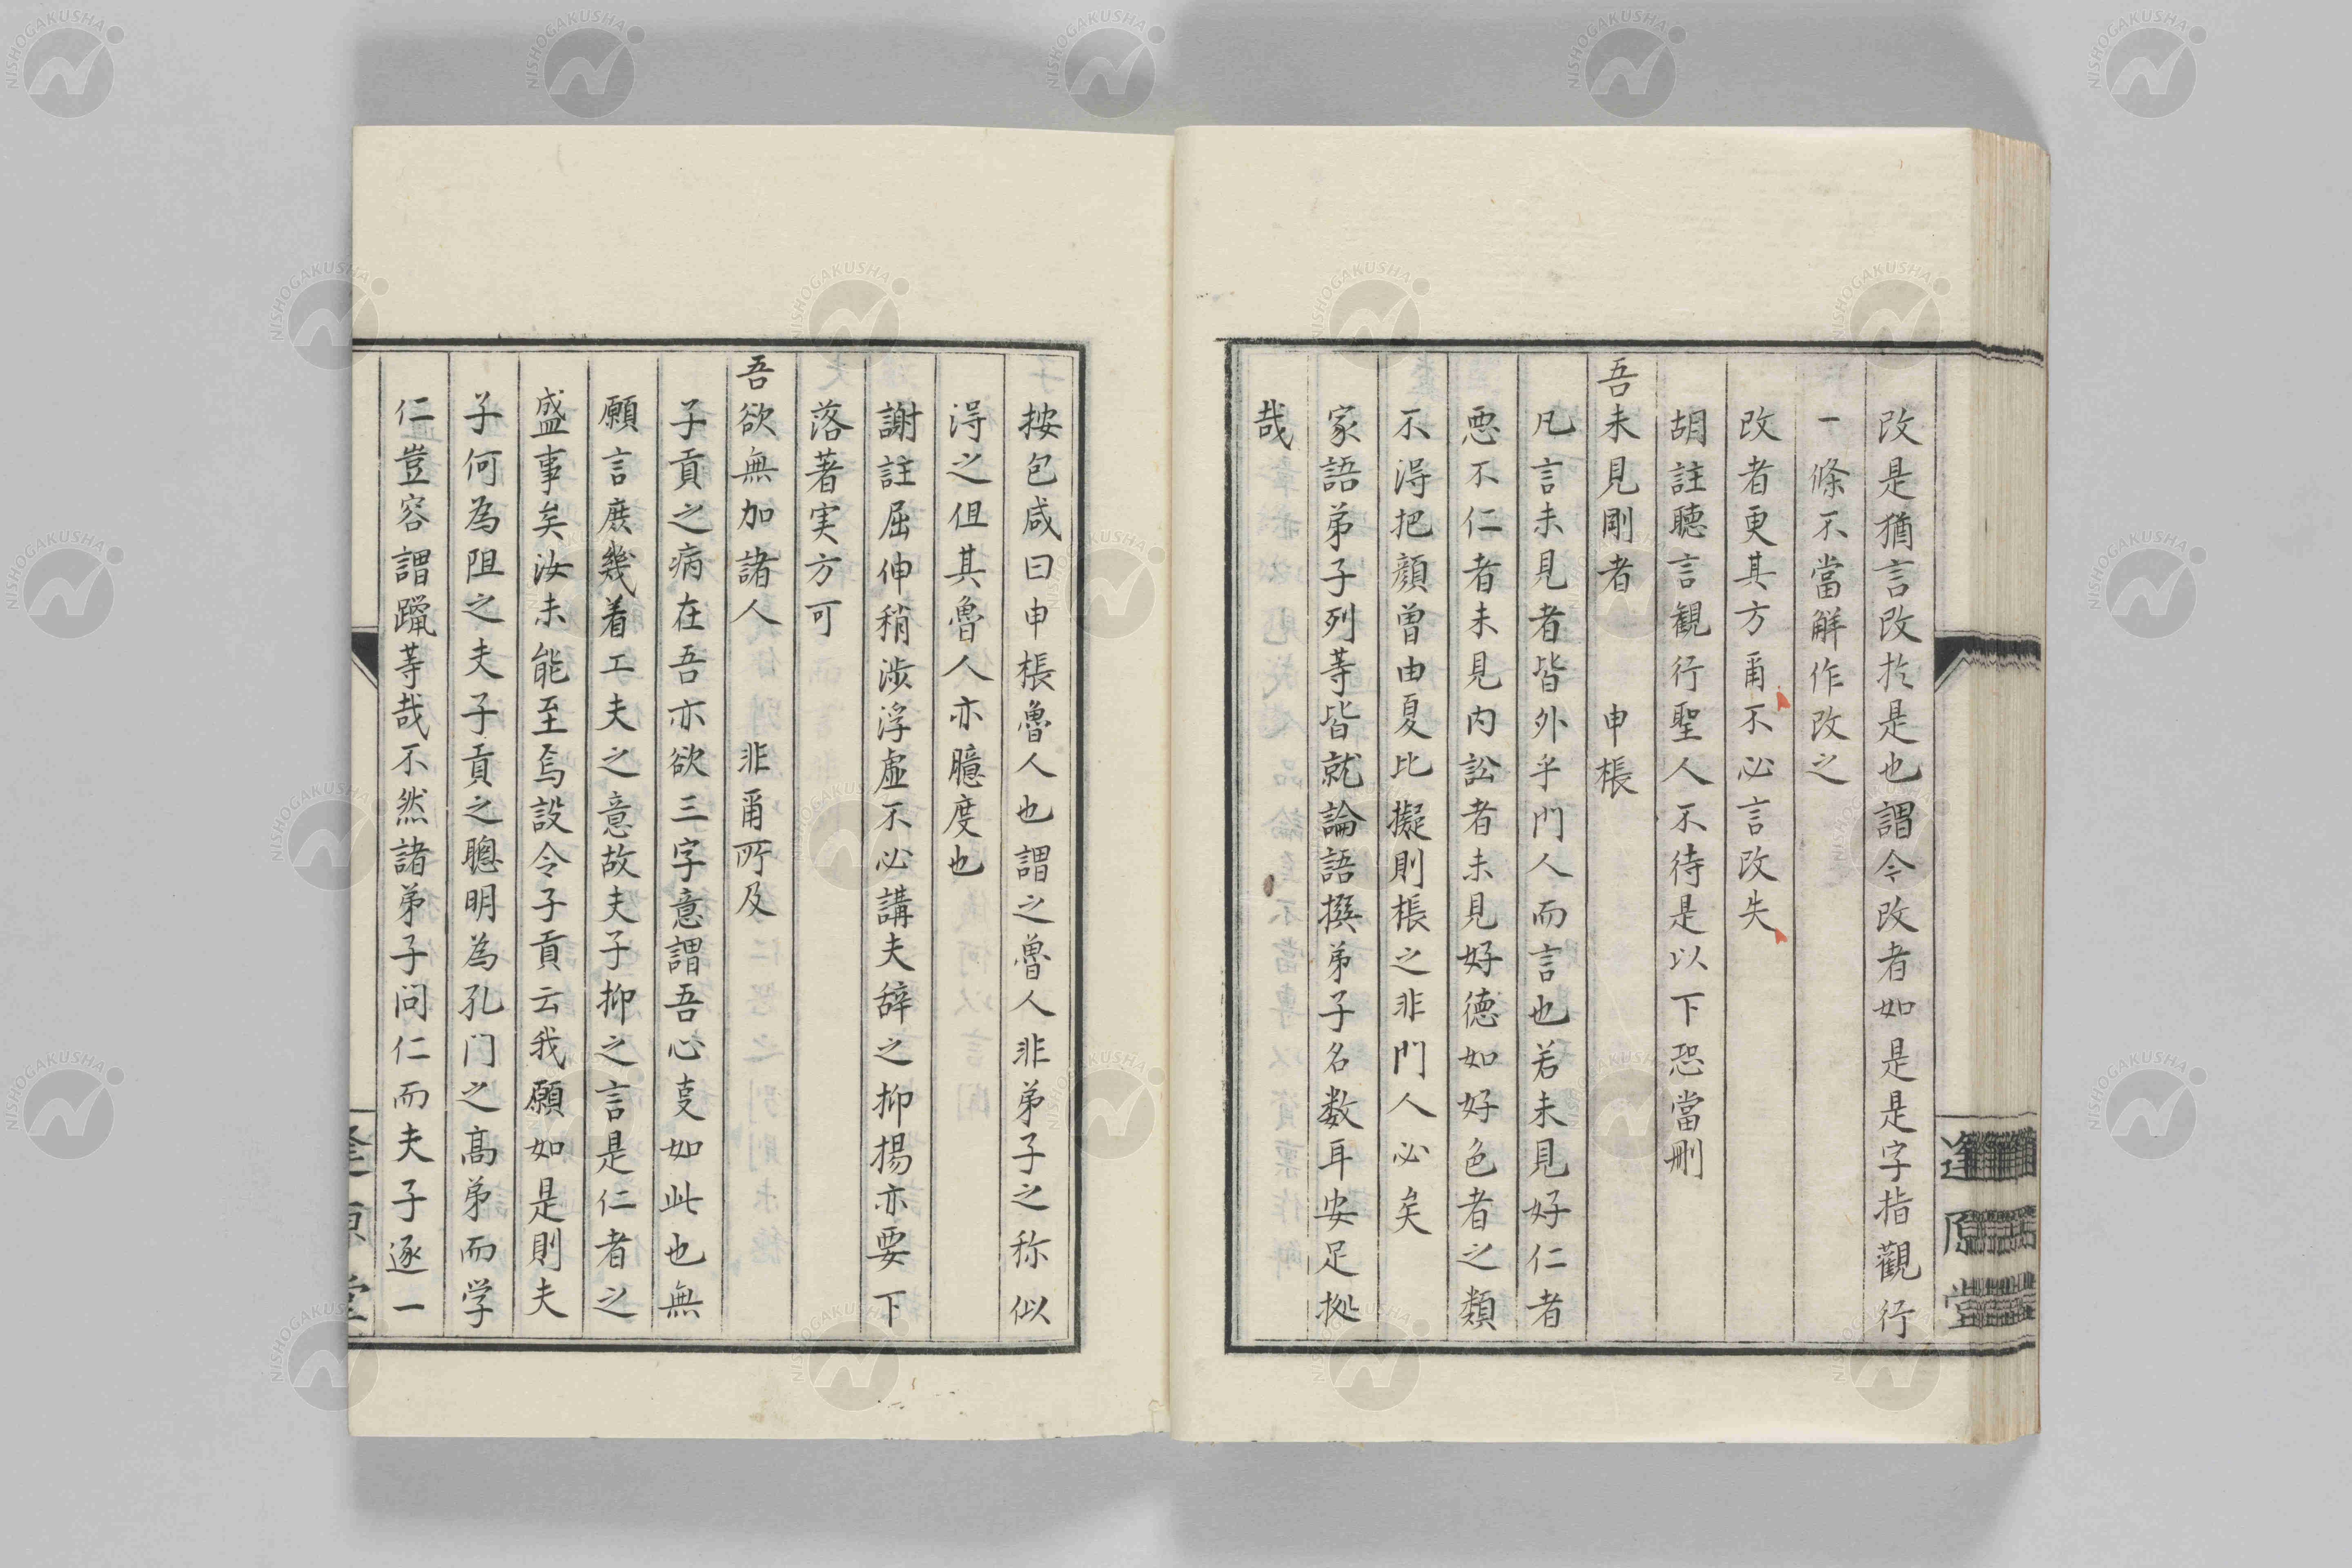 改是猶言改於是也謂今改者如是是字指觀行
一條不當解作改之
改者更其方甭不必言改失
胡註聴言観行聖人不待是以下恐當刪
吾未見剛者　申棖
凡言未見者皆外乎門人而言也若未見好仁者
悪不仁者未見内訟者未見好德如好色者之類
不淂把顔曽由夏比擬則棖之非門人必矣
家語弟子列等皆就論語撰弟子名数耳安足拠
哉
逢原堂
按包咸曰申棖魯人也謂之魯人非弟子之称似
淂之但其魯人亦臆度也
謝註屈伸稍渉浮虚不必講夫辞之抑揚亦要下
落著実方可
吾欲無加諸人　非甭所及
子貢之病在吾亦欲三字意謂吾心叓如此也無
願言庶幾着工夫之意故夫子抑之言是仁者之
盛事矣汝未能至焉設令子貢云我願如是則夫
子何為阻之夫子貢之聰明為孔门之髙弟而学
仁豈容謂躐等哉不然諸弟子问仁而夫子逐一
NISHOGAKUSHA